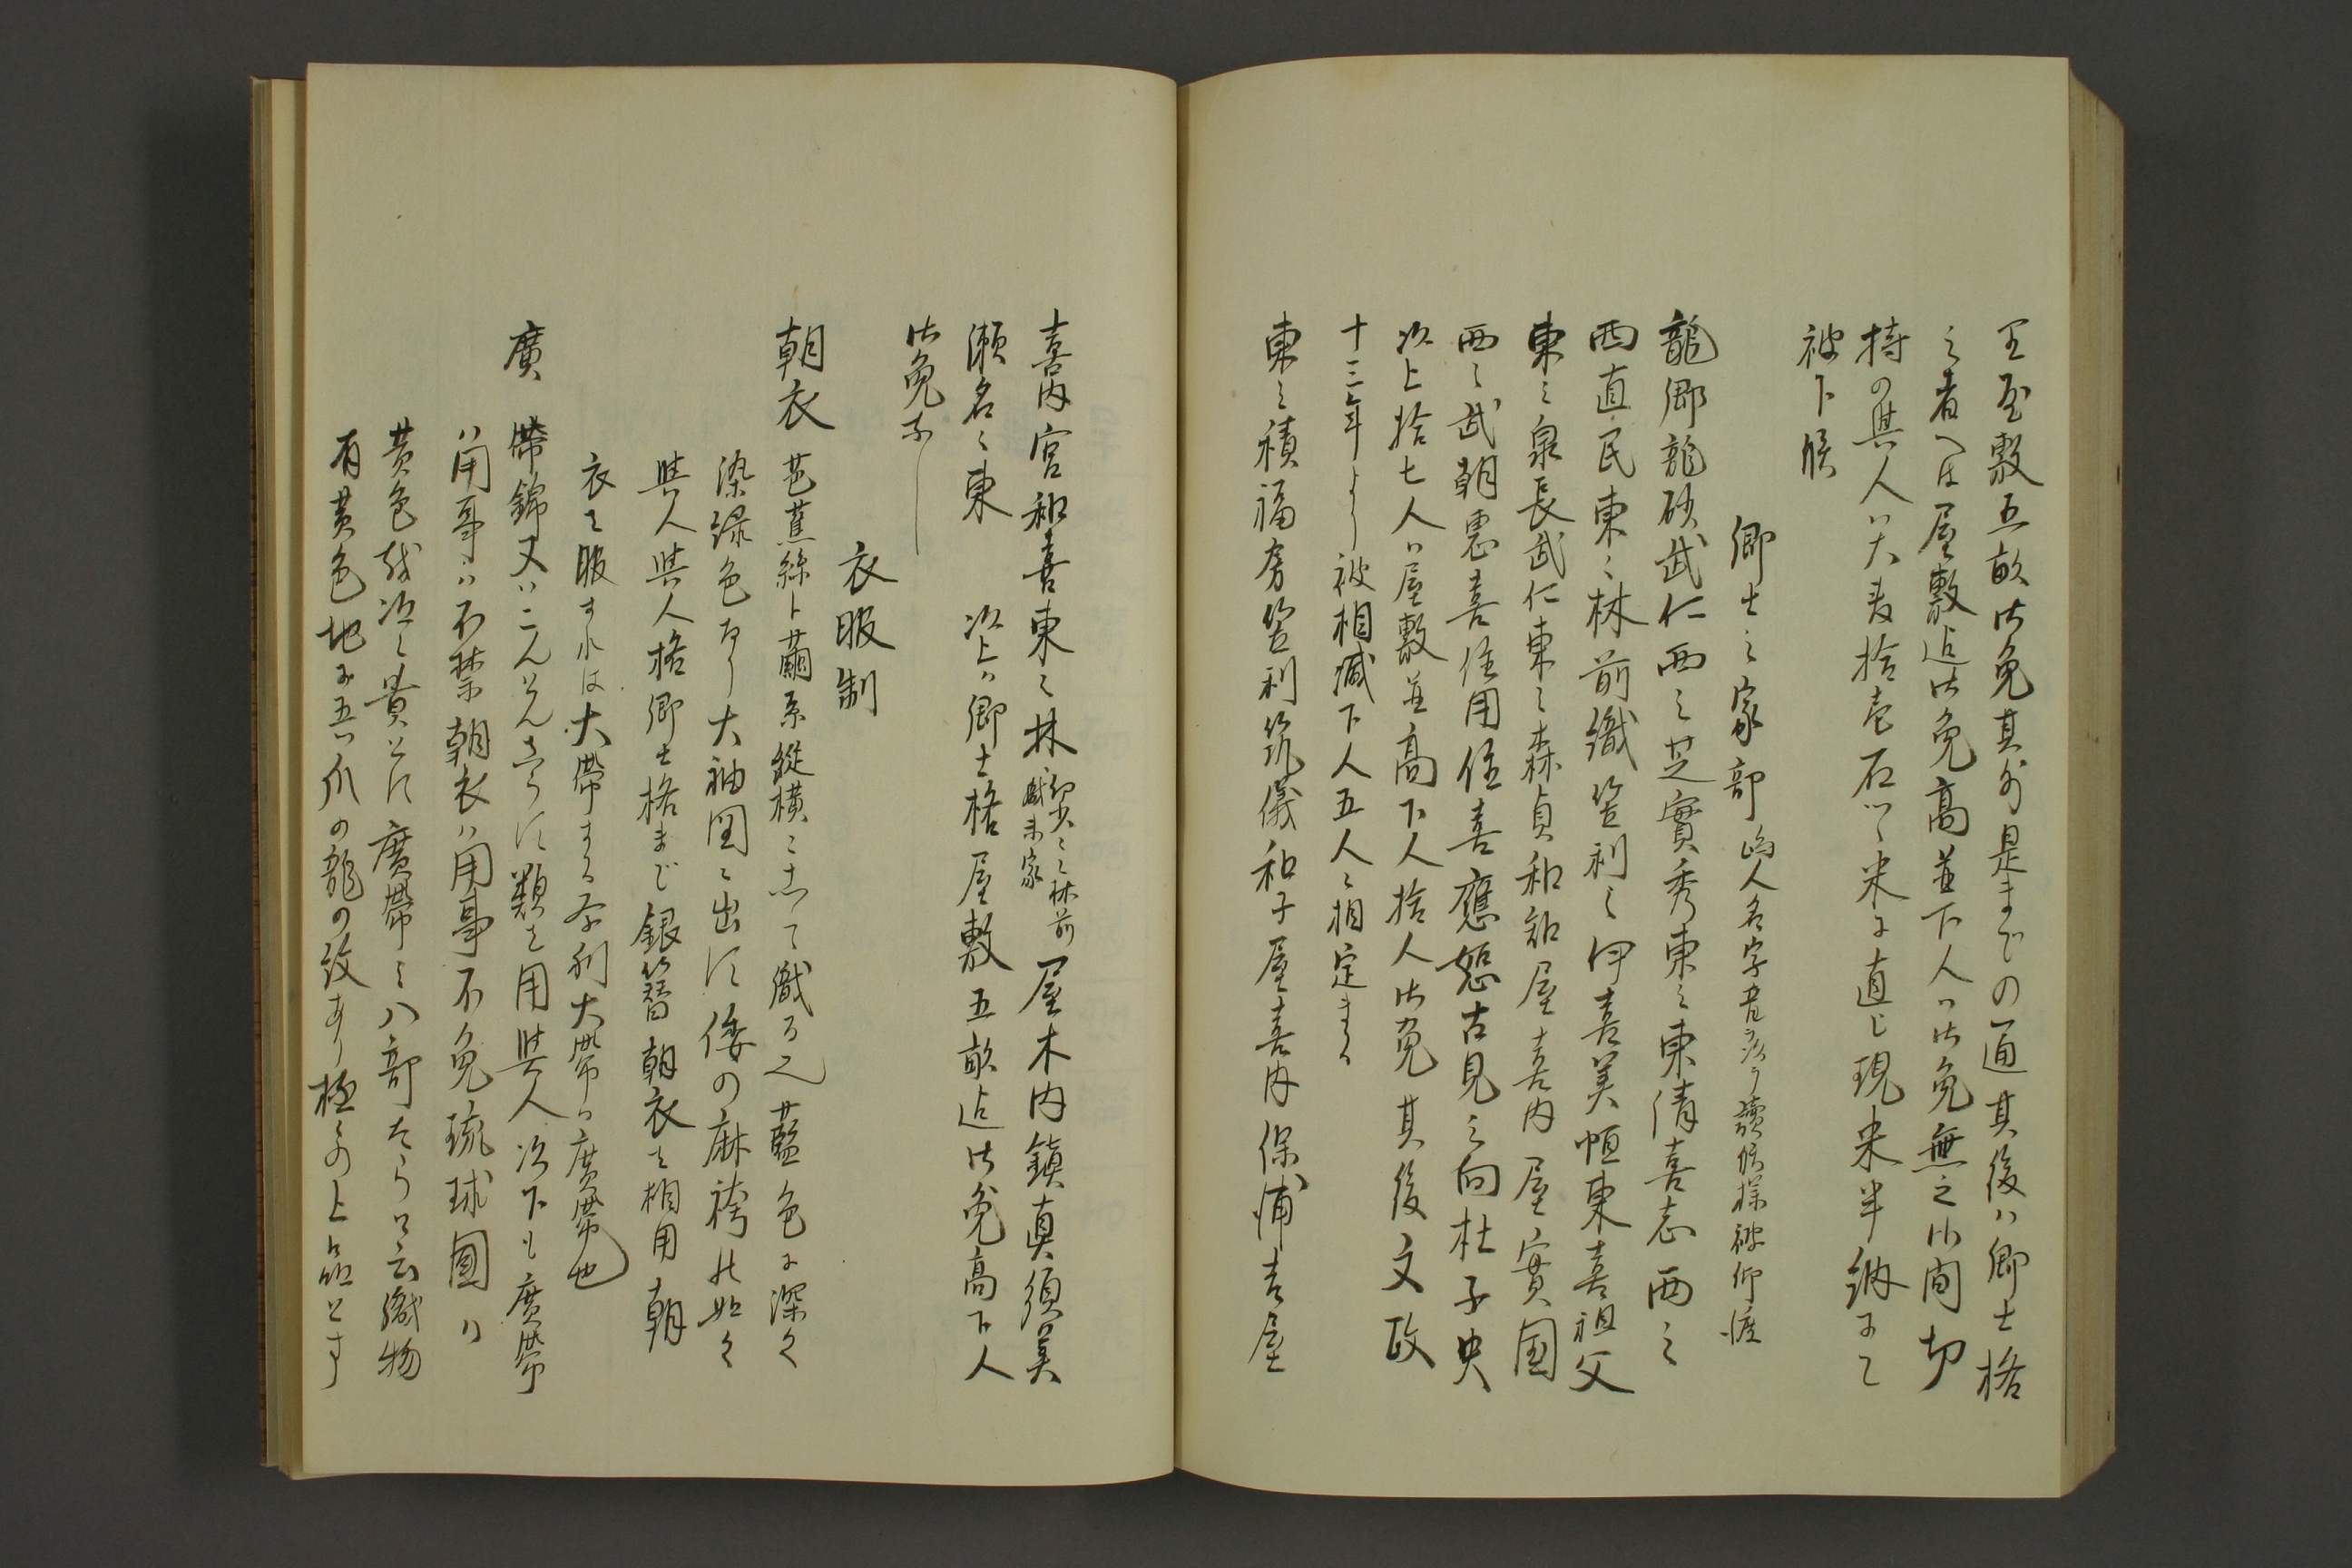 至屋敷五畝御免其外是までの通其後ハ郷士格
之者へは屋敷迄御免高並下人ハ御免無之此間切
持の與人ハ大麦拾壱石ツヽ米に直し現米半納にて
被下候
郷士之家部 嶋人名字音 讀候様被仰渡
龍郷龍砂武仁西之芝實秀東之東倩喜志西之
西直民東之林前織笠利之伊喜美恒東喜祖父
東之泉長武仁東之森貞和知屋喜内屋實國
西之武朝恵喜住用住喜應恕古見之向杜子央
以上拾七人ハ屋敷並高下人拾人御免其後文政
十三年より被相減下人五人に相定まる
東之積福房笠利筑儀和子屋喜内保浦吉屋
喜内宮和喜東之林 林前 家 屋木内鎮真須美
瀬名之東 以上ハ郷士格屋敷五畝迄御免高下人
御免なし
衣服制
朝衣 芭蕉絲ト繭糸縦横にして織る之藍色に深く
染緑色なり大袖図に出す倭の麻袴の如く
與人與人格郷士格まで銀簪朝衣を相用朝
衣を服すれは大帯する 大帯ハ廣帯也
廣 帯錦又ハ 類を用與人以下も廣帯
ハ用事ハ不禁朝衣ハ用事不免琉球國ハ
黄色 次に貴とす廣帯之八部 云織物
有黄色地に五ツ爪の龍の紋あり極の上品とす